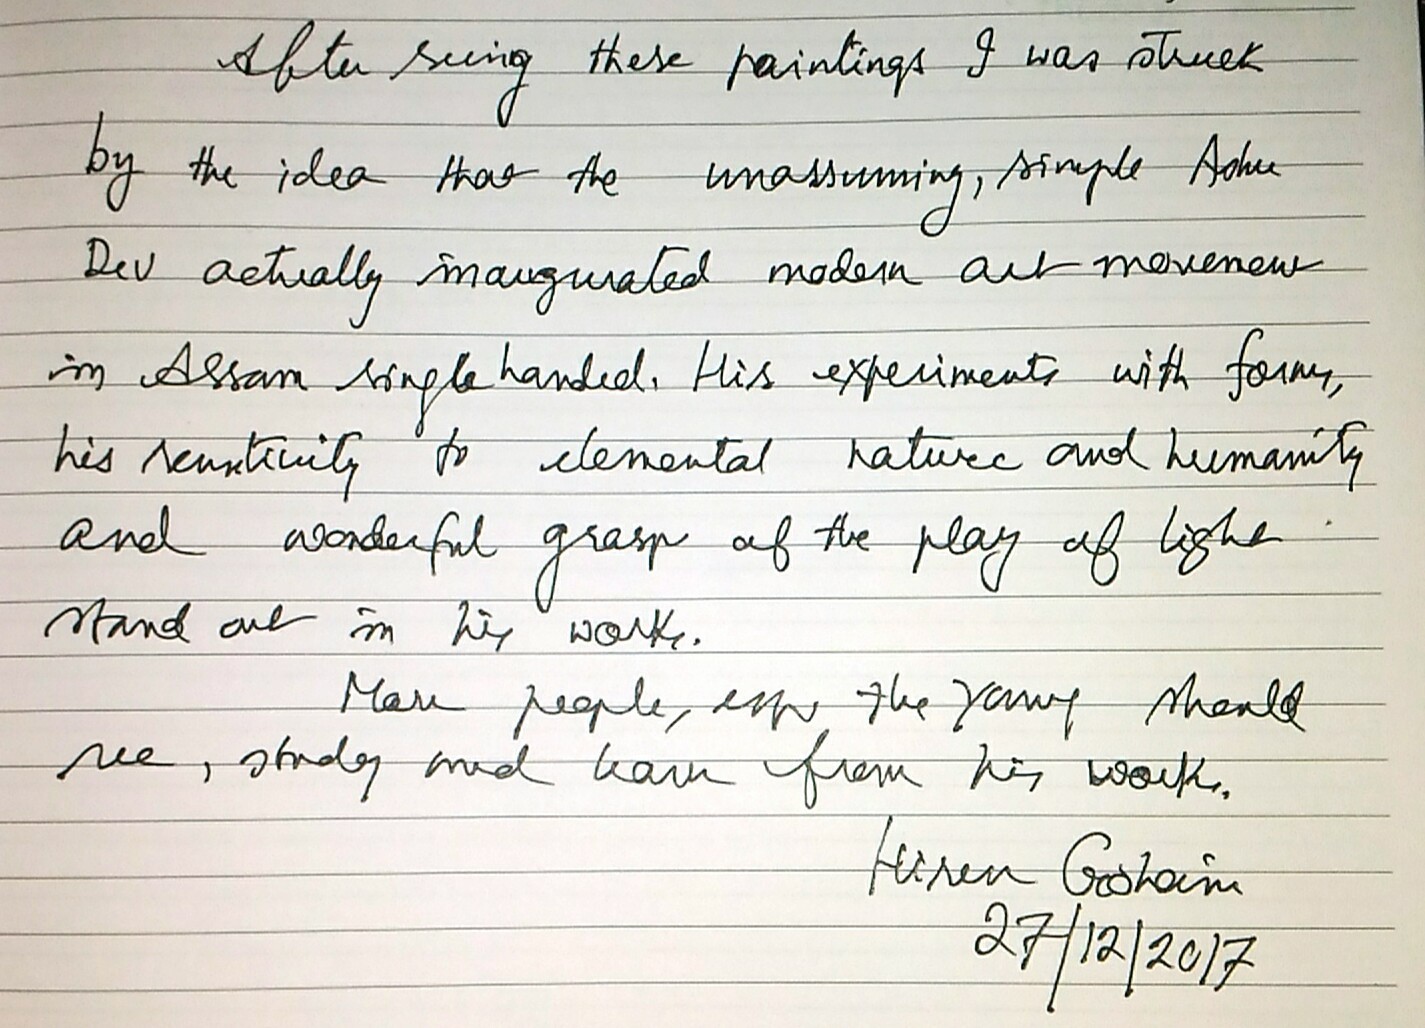 After seeing these paintings I was struck
by the idea that the unassuming, simple Ashu
Dev actually inaugurated modern art movement
in Assam single handed. His experiments with forms,
his sensitivity to elemental nature and humanity
and wonderful grasp of the play of light
stand out in his works.
More people, esp the young should
see, study and learn from his works.
Hiren Gohain
27/12/2017